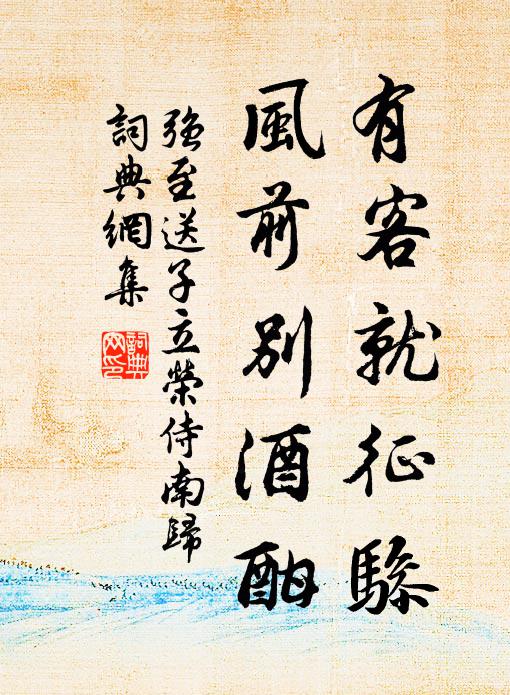 有客就征驂
風前別酒酣
強至送子立榮侍南歸
詞典網集
詞典文印